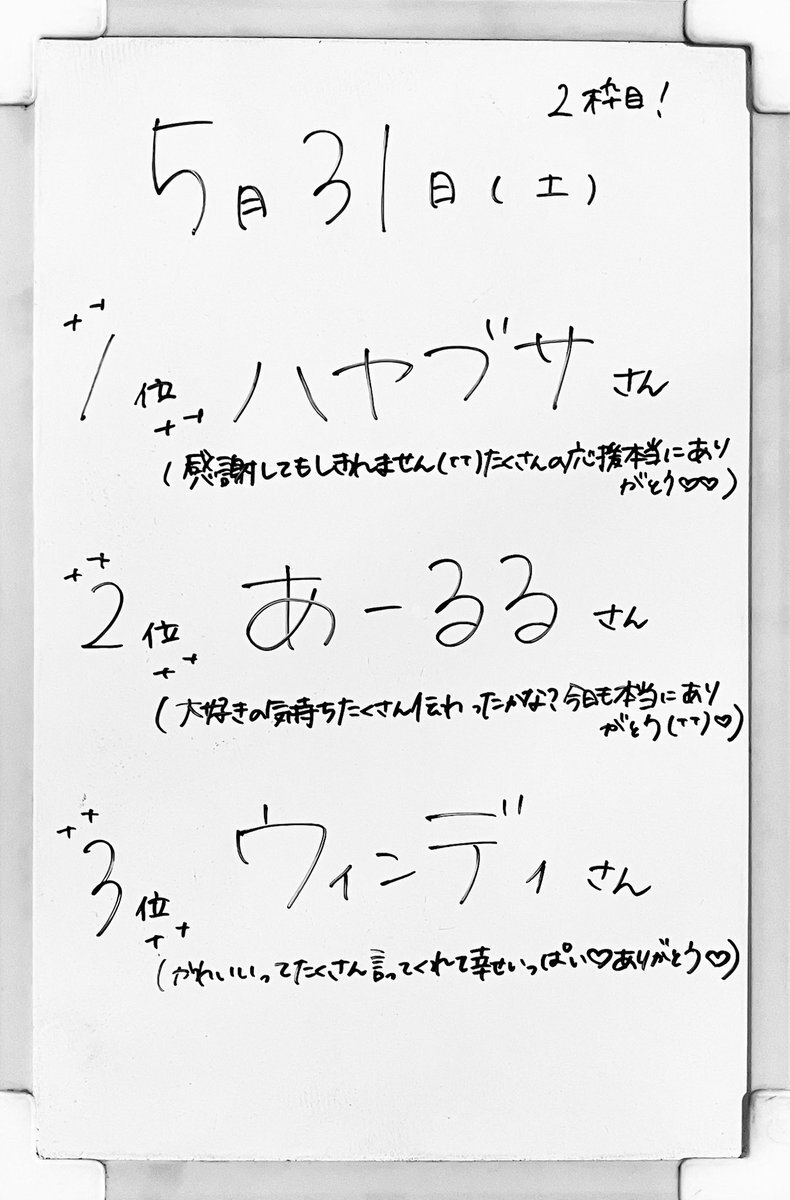 2枠目!
5月31日(土)
1位 ハヤブサさん
(感謝してもしきれません(TT)たくさんの応援本当にあり
がとう♡♡)
2位 あーるるさん
(大好きの気持ちたくさん伝わったかな?今日も本当にあり
がとう(TT)♡)
3位 ウィンディさん
(かわいいってたくさん言ってくれて幸せいっぱい♡ありがとう♡)